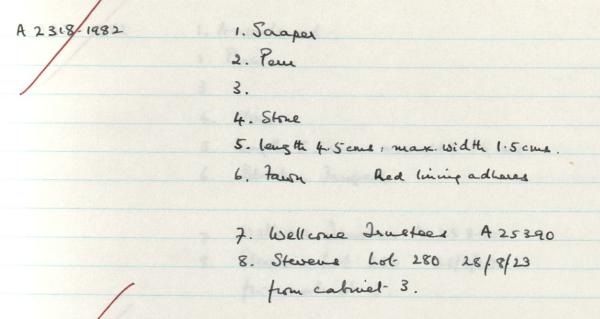 A 2318-1982 1. Scraper
2. Peru
3.
4. Stone
5. length 4.5cms, max. width 1.5cms.
6. Fawn Red lining adheres
7. Wellcome Trustees A25390
8. Stevens Lot 280 28/8/23
from cabinet 3.